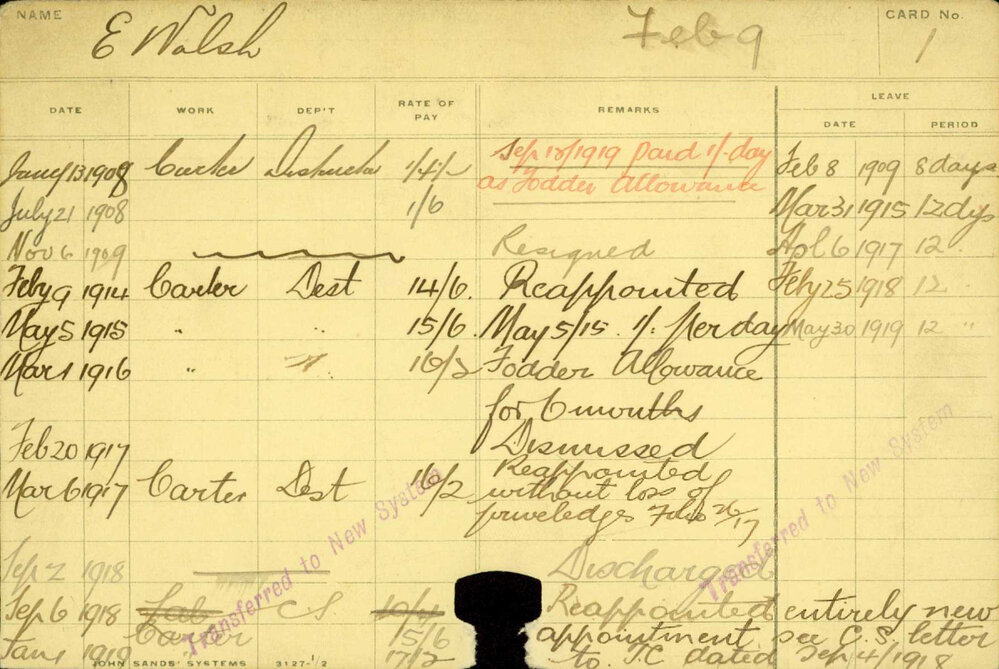 NAME E Walsh Feb 9 CARD No. 1
DATE WORK DEP'T RATE OF PAY REMARKS LEAVE
DATE PERIOD
Sep 18/1919 paid 1/- day
Jany 13 1908 Carter Destructor 1/4/- as Fodder Allowance Feb 8 1909 8 days
July 21 1908 1/6 Mar 31 1915 12 dys
Nov 6 1909 Resigned Apl 6 1917 12 "
Feby 9 1914 Carter Dest 14/6 Reappointed Feby 25 1918 12 "
May 5 1915 " " 15/6 May 5/15 1/- per day May 30 1919 12 "
Mar 1 1916 " " 16/2 Fodder Allowance
for 6 months
Feb 20 1917 Dismissed
Mar 6 1917 Carter Dest 16/2 Reappointed
without loss of
priveledges Folio 26/17
Sep 2 1918 Discharged
Sep 6 1918 Lab C S Reappointed entirely new
Carter 15/6 appointment see C.S. letter
Jan 1 1919 17/2 to T.C dated Sep 4/1918
JOHN SANDS' SYSTEMS 3127-1/2
Transferred to New System
Transferred to New System